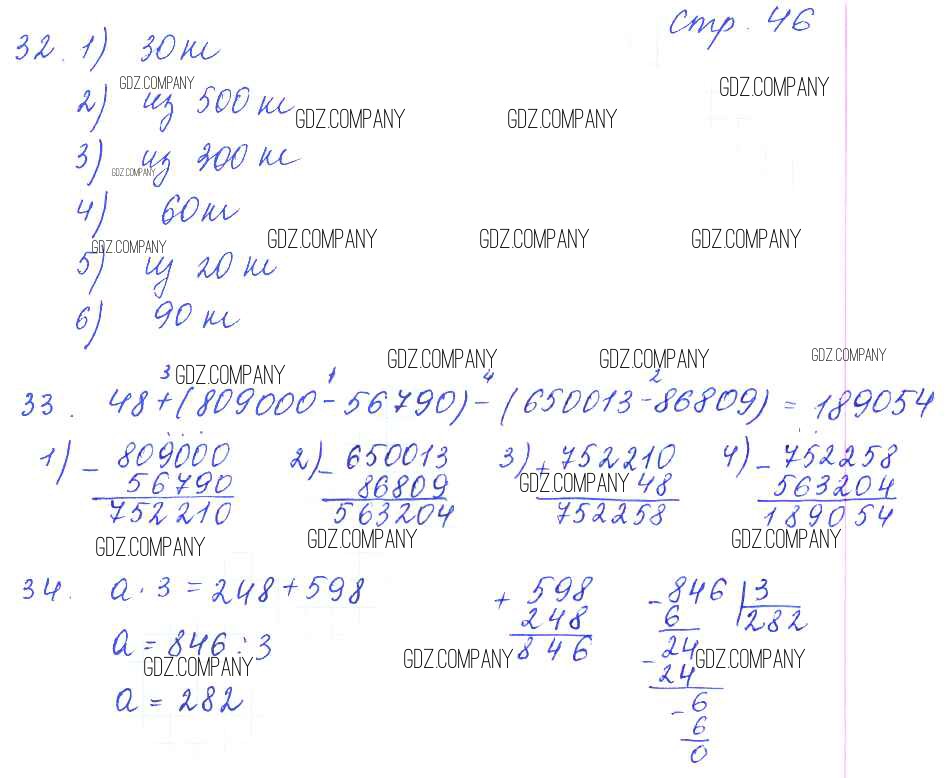 стр. 46
32. 1) 30 кг
GDZ.COMPANY GDZ.COMPANY
2) из 500 кг GDZ.COMPANY GDZ.COMPANY
3) из 300 кг
GDZ.COMPANY
4) 60 кг
GDZ.COMPANY GDZ.COMPANY GDZ.COMPANY GDZ.COMPANY
5) из 20 кг
6) 90 кг
GDZ.COMPANY GDZ.COMPANY GDZ.COMPANY GDZ.COMPANY
3 1 4 2
33. 48+(809000-56790)-(650013-86809) = 189054
1) - 809000 2) - 650013 3) + 752210 4) - 752258
56790 86809 GDZ.COMPANY 48 563204
752210 563204 752258 189054
GDZ.COMPANY GDZ.COMPANY GDZ.COMPANY
34. a · 3 = 248 + 598 + 598 - 846 | 3
248 6 282
a = 846 : 3 846 - 24
GDZ.COMPANY GDZ.COMPANY 24 GDZ.COMPANY
a = 282 - 6
6
0